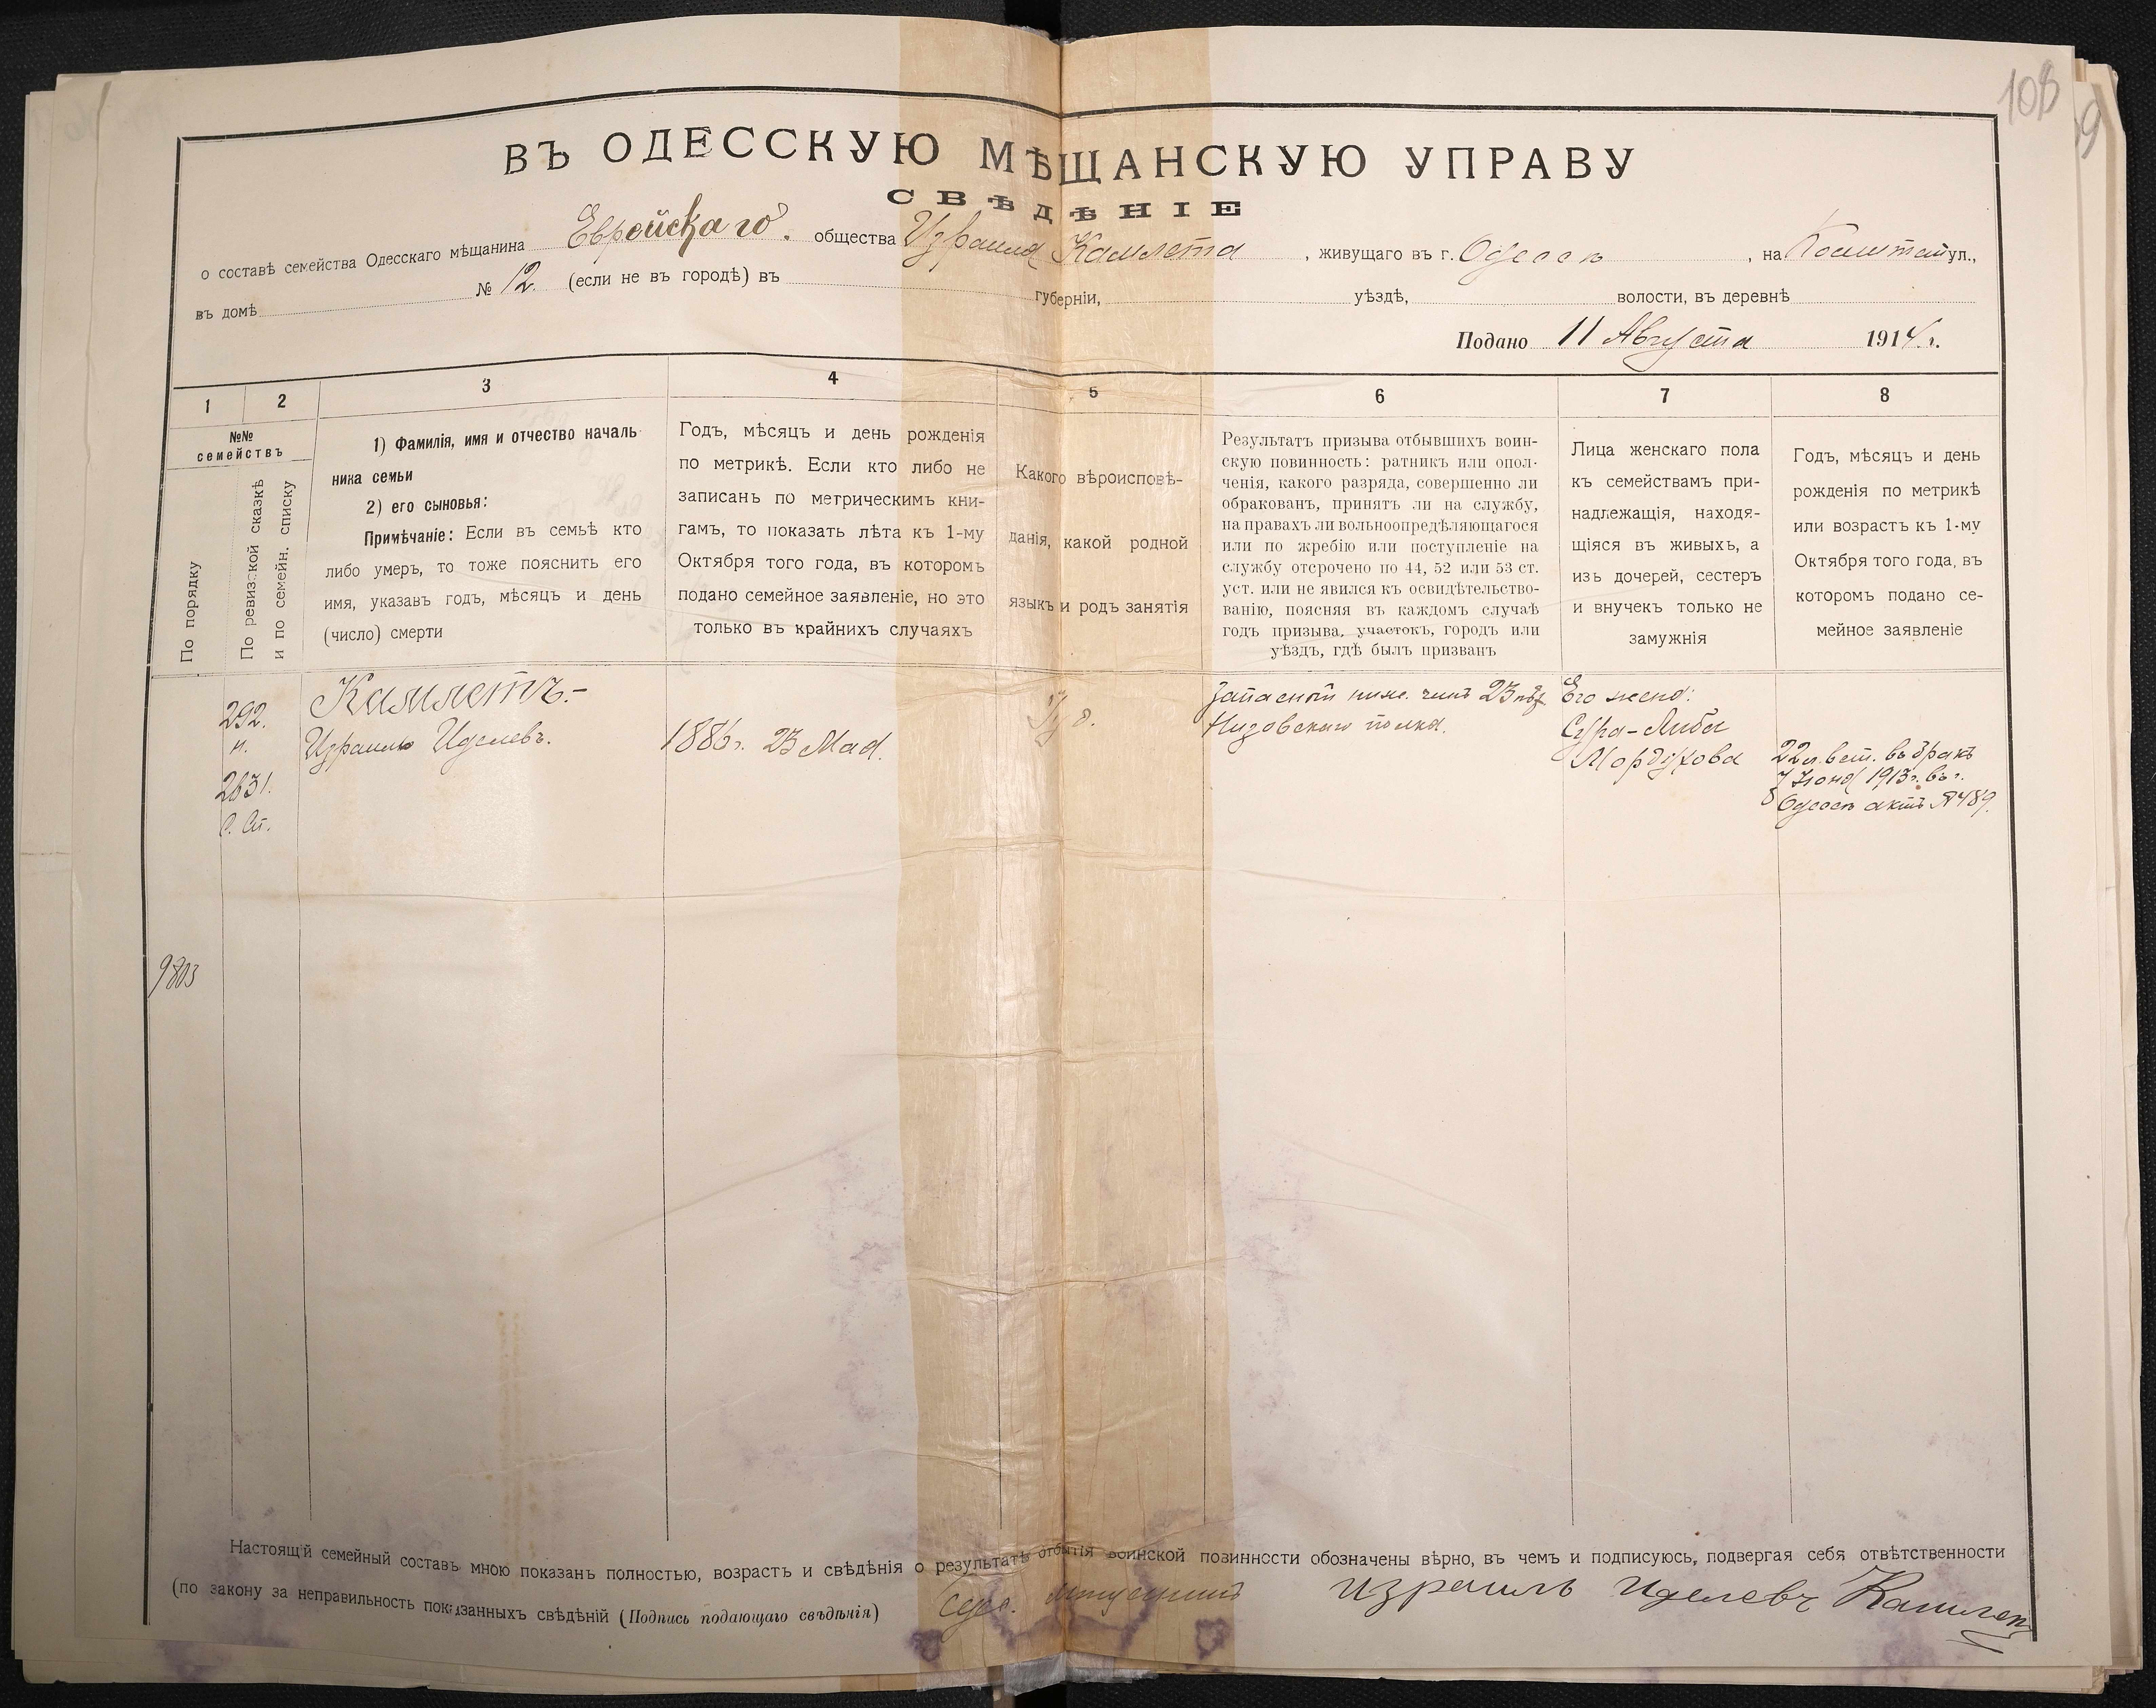 108
9
ВЪ ОДЕССКУЮ МѢЩАНСКУЮ УПРАВУ
СВѢДѢНІЕ
о составѣ семейства Одесскаго мѣщанина Еврейскаго общества Израиля Камлета, живущаго въ г. Одессѣ, на ул.,
въ домѣ № 12. (если не въ городѣ) въ губерніи, уѣздѣ, волости, въ деревнѣ
Подано 11 Августа 1914 г.
1 2 3 4 5 6 7 8
№№ семействъ
По порядку
По ревизской сказкѣ и по семейн. списку
1) Фамилія, имя и отчество началь-
ника семьи
2) его сыновья:
Примѣчаніе: Если въ семьѣ кто
либо умеръ, то тоже пояснить его
имя, указавъ годъ, мѣсяцъ и день
(число) смерти
Годъ, мѣсяцъ и день рожденія
по метрикѣ. Если кто либо не
записанъ по метрическимъ кни-
гамъ, то показать лѣта къ 1-му
Октября того года, въ которомъ
подано семейное заявленіе, но это
только въ крайнихъ случаяхъ
Какого вѣроисповѣ-
данія, какой родной
языкъ и родъ занятія
Результатъ призыва отбывшихъ воин-
скую повинность: ратникъ или опол-
ченія, какого разряда, совершенно ли
обракованъ, принятъ ли на службу,
на правахъ ли вольноопредѣляющагося
или по жребію или поступленіе на
службу отсрочено по 44, 52 или 53 ст.
уст. или не явился къ освидѣтельство-
ванію, поясняя въ каждомъ случаѣ
годъ призыва, участокъ, городъ или
уѣздъ, гдѣ былъ призванъ
Лица женскаго пола
къ семействамъ при-
надлежащія, находя-
щіяся въ живыхъ, а
изъ дочерей, сестеръ
и внучекъ только не
замужнія
Годъ, мѣсяцъ и день
рожденія по метрикѣ
или возрастъ къ 1-му
Октября того года, въ
которомъ подано се-
мейное заявленіе
292.
н.
2631.
С. Сп.
Камлетъ.-
Израиль Иделевъ.
1886 г. 23 Мая.
Іуд.
Запасной ниж. чинъ 23 пѣх.
Низовскаго полка.
Его жена:
Сура-Либа
Мордухова
22 л. вст. въ бракъ
7 Іюня 1913 г. въ г.
Одессѣ актъ № 489.
9803
Настоящій семейный составъ мною показанъ полностью, возрастъ и свѣдѣнія о результатѣ отбытія воинской повинности обозначены вѣрно, въ чемъ и подписуюсь, подвергая себя отвѣтственности
(по закону за неправильность показанныхъ свѣдѣній (Подпись подающаго свѣдѣнія) Израиль Иделевъ Камлетъ